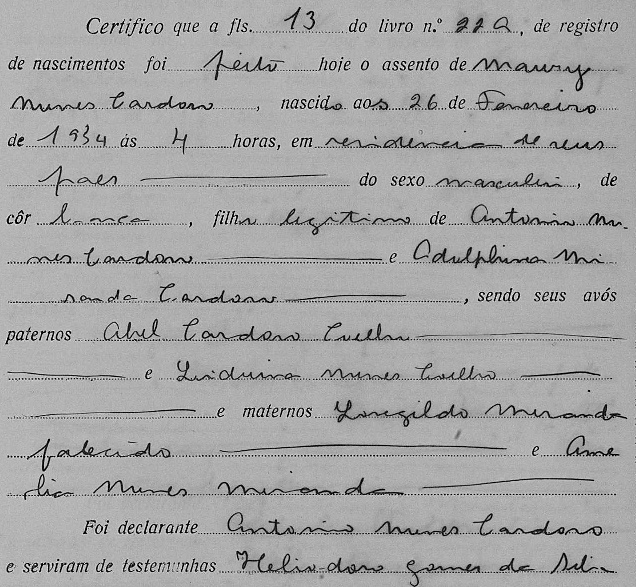 Certifico que a fls. 13 do livro n.º 22A, de registro
de nascimentos foi feito hoje o assento de Maury
Nunes Cardoso, nascido aos 26 de Fevereiro
de 1934 ás 4 horas, em residencia de seus
paes do sexo masculin, de
côr branca, filho legitimo de Antonio Nu-
nes Cardoso e Adulphina Mi
randa Cardoso, sendo seus avós
paternos Abel Cardoso Coelho
e Liduina Nunes Coelho
e maternos Miranda
falecido e Ame
lia Nunes Miranda
Foi declarante Antonio Nunes Cardoso
e serviram de testemunhas Heliodoro Gomes da Silva